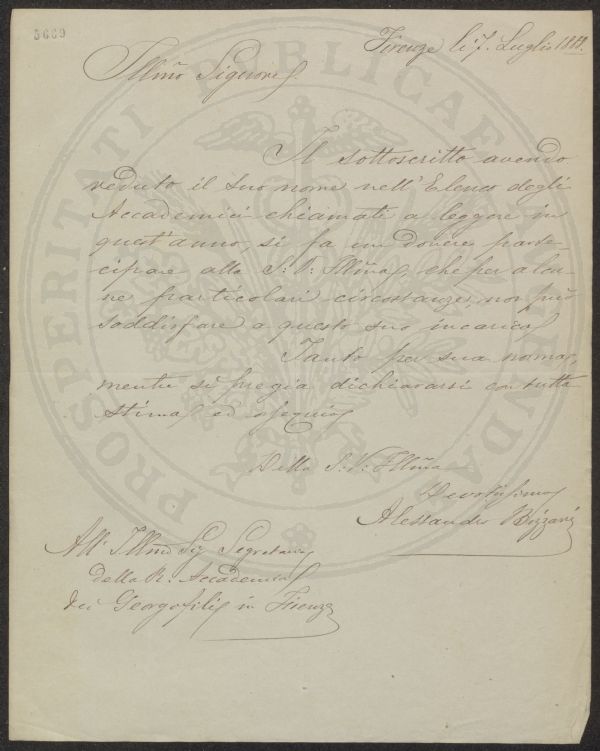 5669
Firenze li 7. Luglio 18
Illmo Signore
Il sottoscritto avendo
veduto il suo nome nell'Elenco degli
Accademici chiamati a leggere in
quest'anno, si fa un dovere parte-
cipare alla S: V: Illma, che per alcu-
ne particolari circostanze, non può
soddisfare a questo suo incarico
Tanto per sua norma,
mentre si pregia dichiararsi con tutta
stima ed ossequio
Della S: V: Illma
Devotissimo
Alessandro
All' Illmo Sig Segretario
della R: Accademia
dei Georgofili in Firenze
PROSPERITATI PUBLICAE AUGENDAE